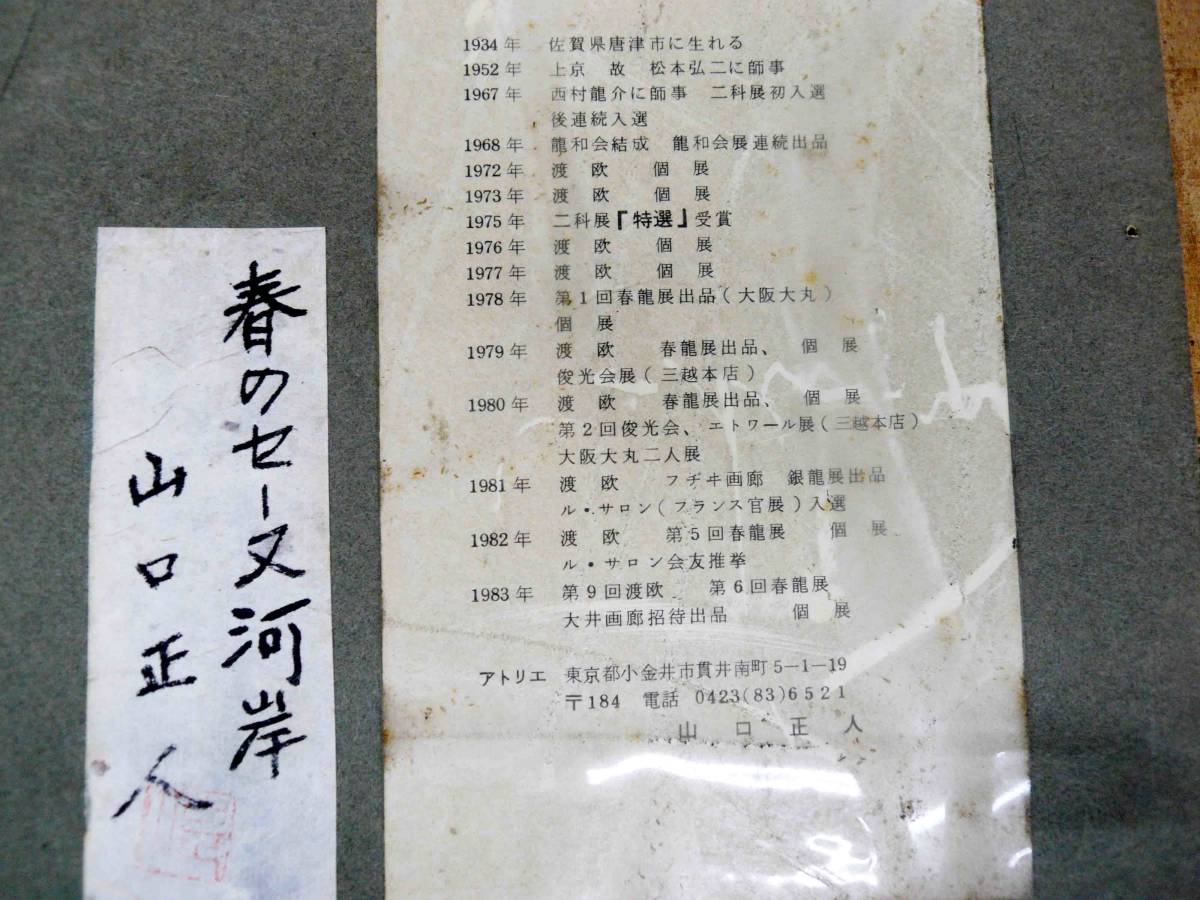 春のセーヌ河岸
山口正人
1934年 佐賀県唐津市に生れる
1952年 上京 故 松本弘二に師事
1967年 西村龍介に師事 二科展初入選
後連続入選
1968年 龍和会結成 龍和会展連続出品
1972年 渡欧 個展
1973年 渡欧 個展
1975年 二科展「特選」受賞
1976年 渡欧 個展
1977年 渡欧 個展
1978年 第1回春龍展出品(大阪大丸)
個展
1979年 渡欧 春龍展出品、 個展
俊光会展(三越本店)
1980年 渡欧 春龍展出品、 個展
第2回俊光会、エトワール展(三越本店)
大阪大丸二人展
1981年 渡欧 フヂヰ画廊 銀龍展出品
ル・サロン(フランス官展)入選
1982年 渡欧 第5回春龍展 個展
ル・サロン会友推挙
1983年 第9回渡欧 第6回春龍展
大井画廊招待出品 個展
アトリエ 東京都小金井市貫井南町5-1-19
〒184 電話 0423(83)6521
山口正人